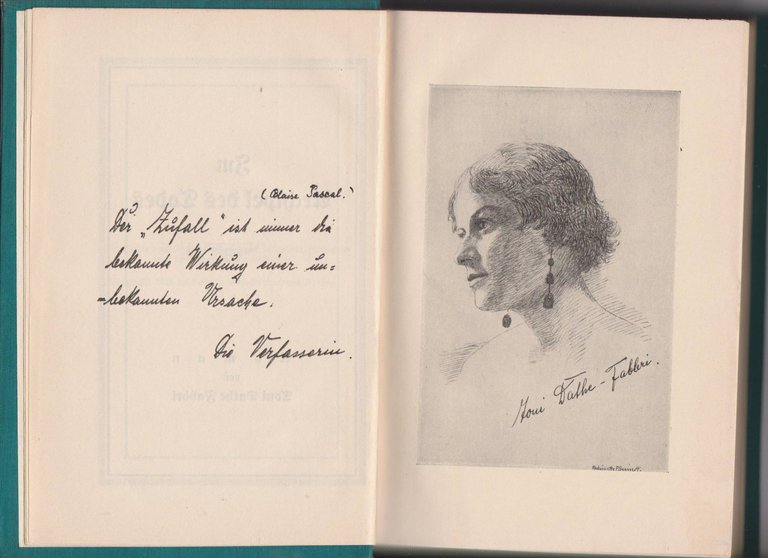 (Blaise Pascal.)
Der „Zufall" ist immer die
bekannte Wirkung einer un=
=bekannten Ursache.
Die Verfasserin.
Toni Dathe-Fabbri.